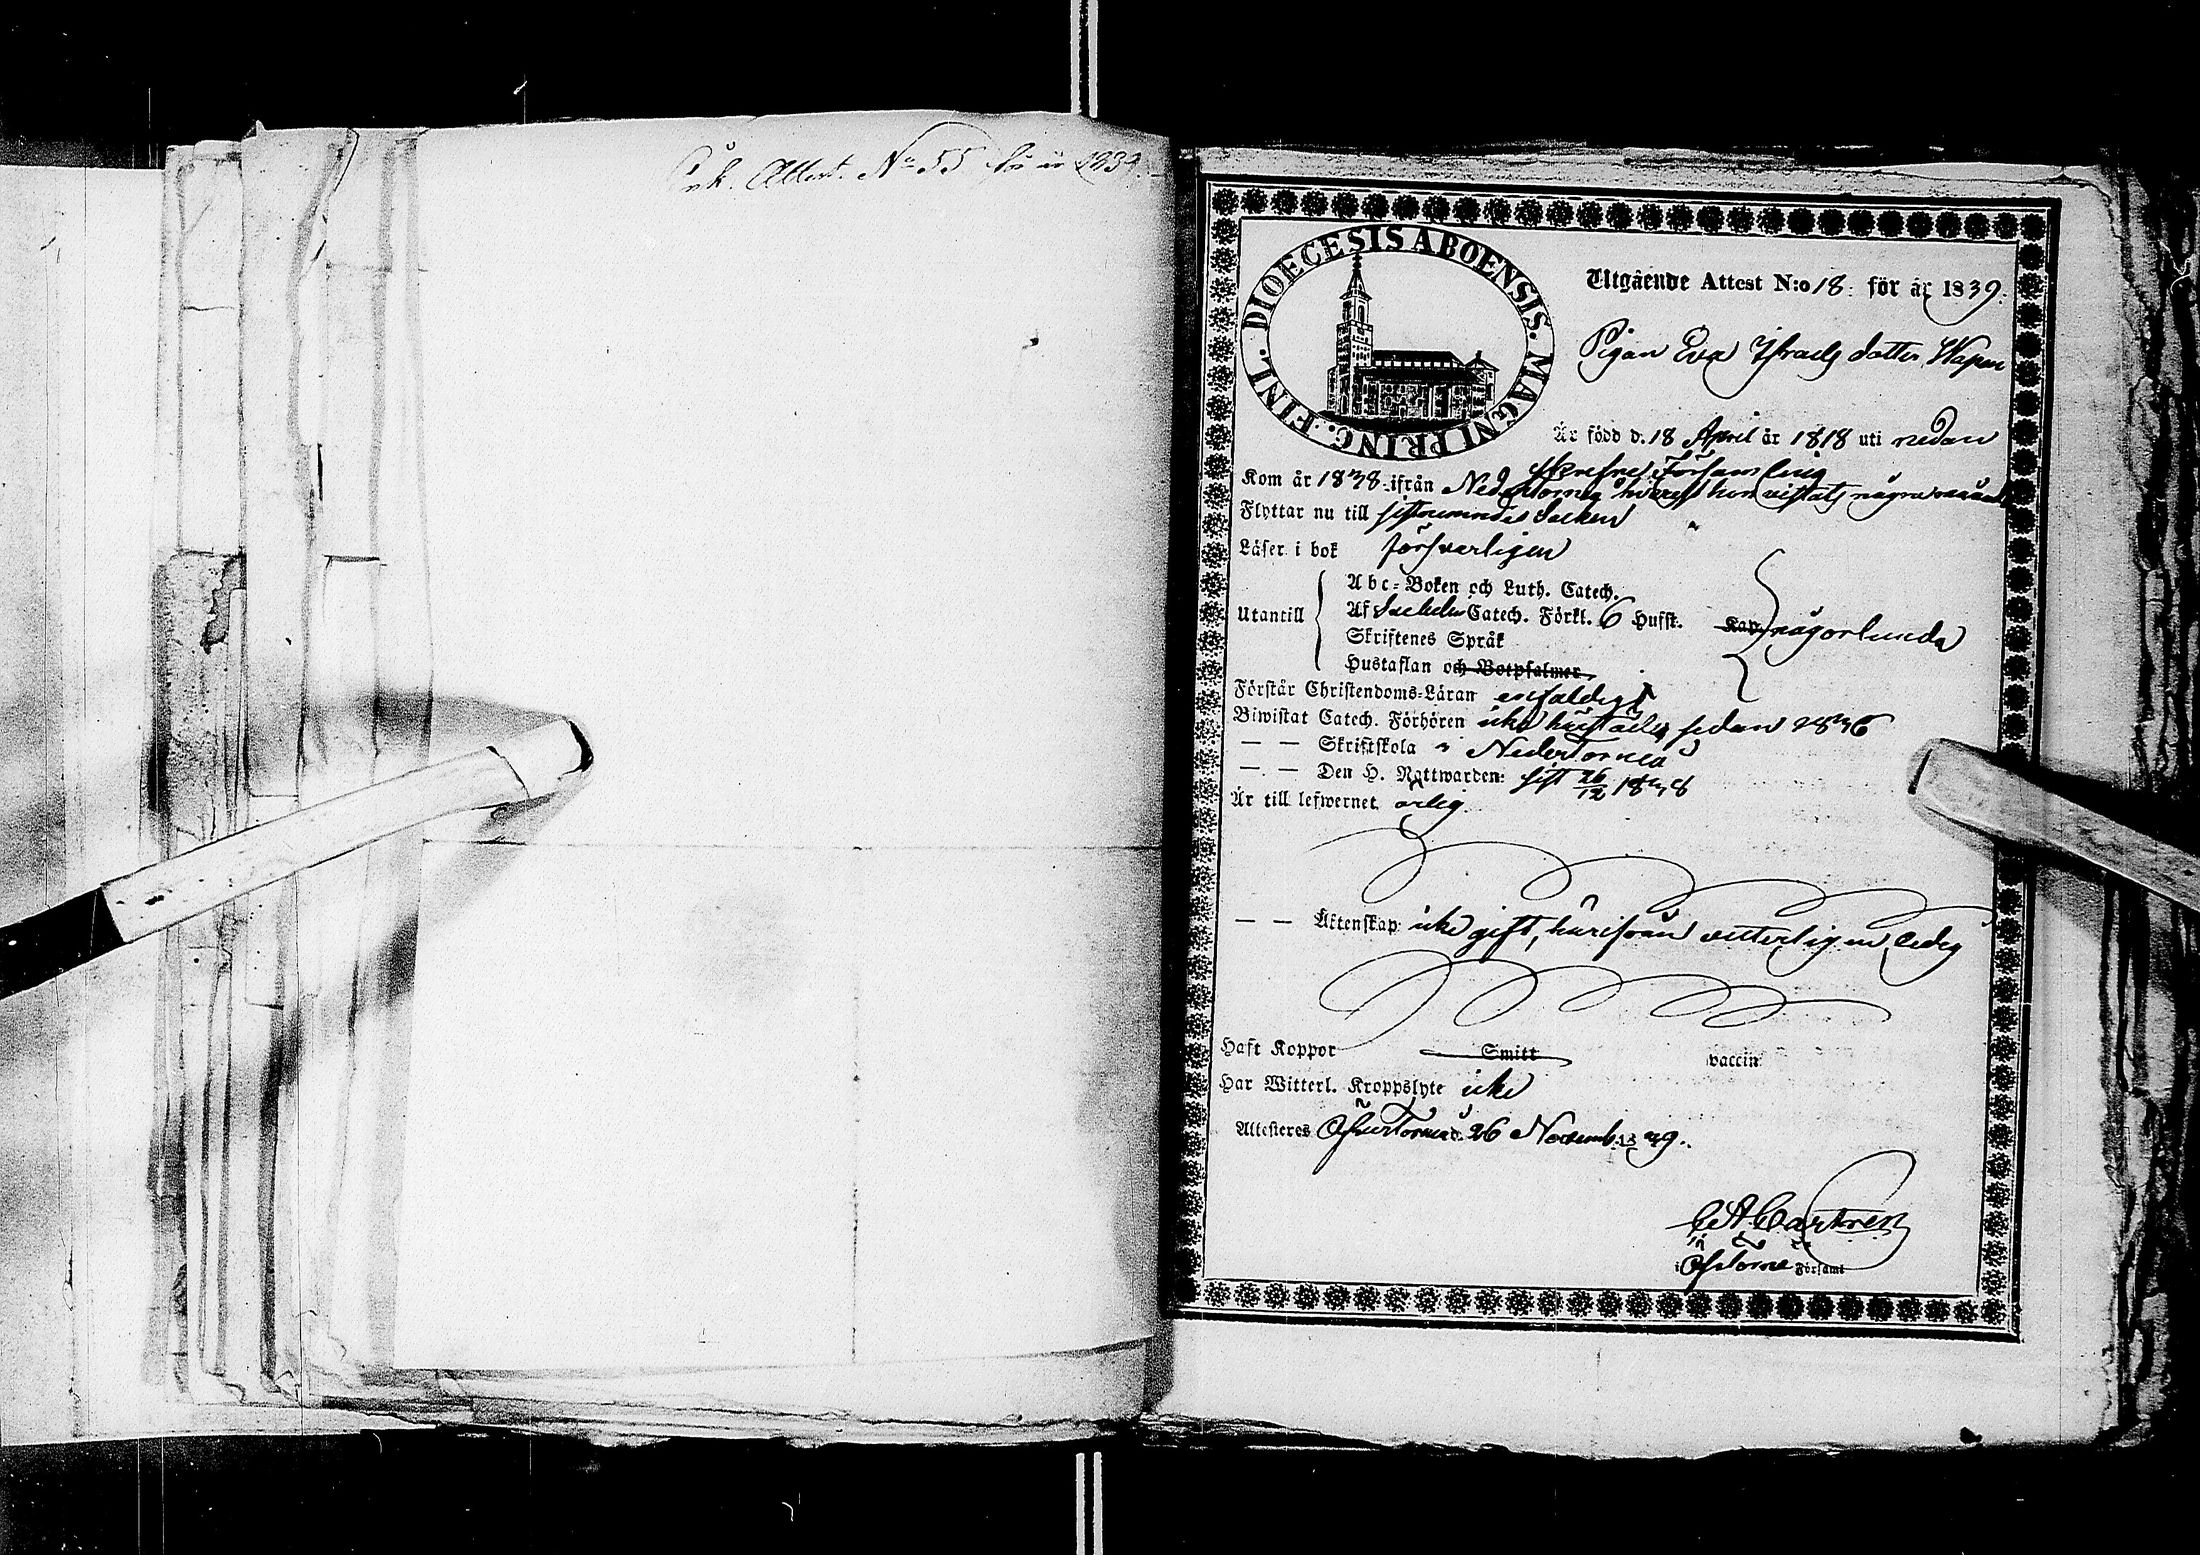 Ink. Attest. No 55 för år 1839.
DIOECESIS ABOENSIS. MAGNI PRINC. FINL.
Utgående Attest N:o 18. för år 1839.
Pigan Eva Israels dotter
Är född d. 18 April år 1818 uti nedan
skrefne Församling
Kom år 1838 ifrån Nedertorneå hvarest hon vistats några
Flyttar nu till sistnemnde Socken
Läser i bok försvarligen
Abc-Boken och Luth. Catech.
Utantill Af Sebelii Catech. Förkl. 6 Hufst. Kap. någorlunda
Skriftenes Språk
Hustaflan och Botpsalmer
Förstår Christendoms-Läran enfaldigt
Biwistat Catech. Förhören icke härstädes sedan 1836
— — Skriftskola i NederTorneå
— — Den H. Nattwarden: sist 26/12 1838
Är till lefwernet ärlig
— — Äktenskap: icke gift, härifrån vetterligen ledig
Haft Koppor Smitt vaccin
Har Witterl. Kroppslyte icke
Attesteras ÖfverTorneå d. 26 Novemb. 1839.
Castrén
i Öf. Torneå Församl